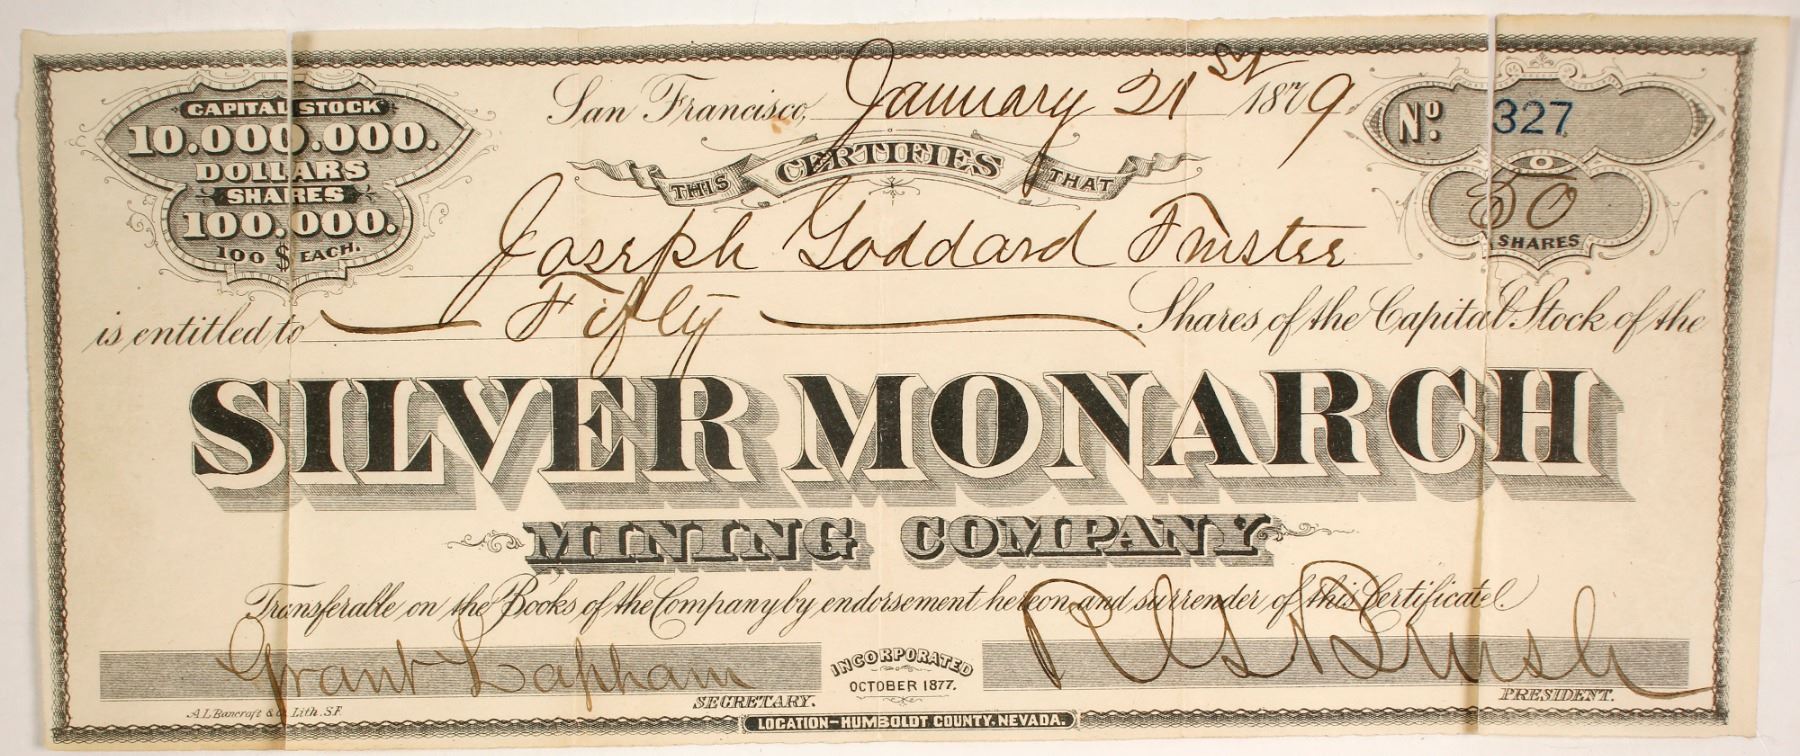 CAPITAL STOCK
10.000.000.
DOLLARS
SHARES
100.000.
100 $ EACH.
San Francisco, January 21st 1879
No. 327
50
SHARES
THIS CERTIFIES THAT
Joseph Goddard Trustee
is entitled to Fifty Shares of the Capital Stock of the
SILVER MONARCH
MINING COMPANY
Transferable on the Books of the Company by endorsement hereon and surrender of this Certificate.
Grant Lapham
SECRETARY.
INCORPORATED
OCTOBER 1877.
Brush
PRESIDENT.
A L Bancroft & Co. Lith. S.F.
LOCATION-HUMBOLDT COUNTY. NEVADA.